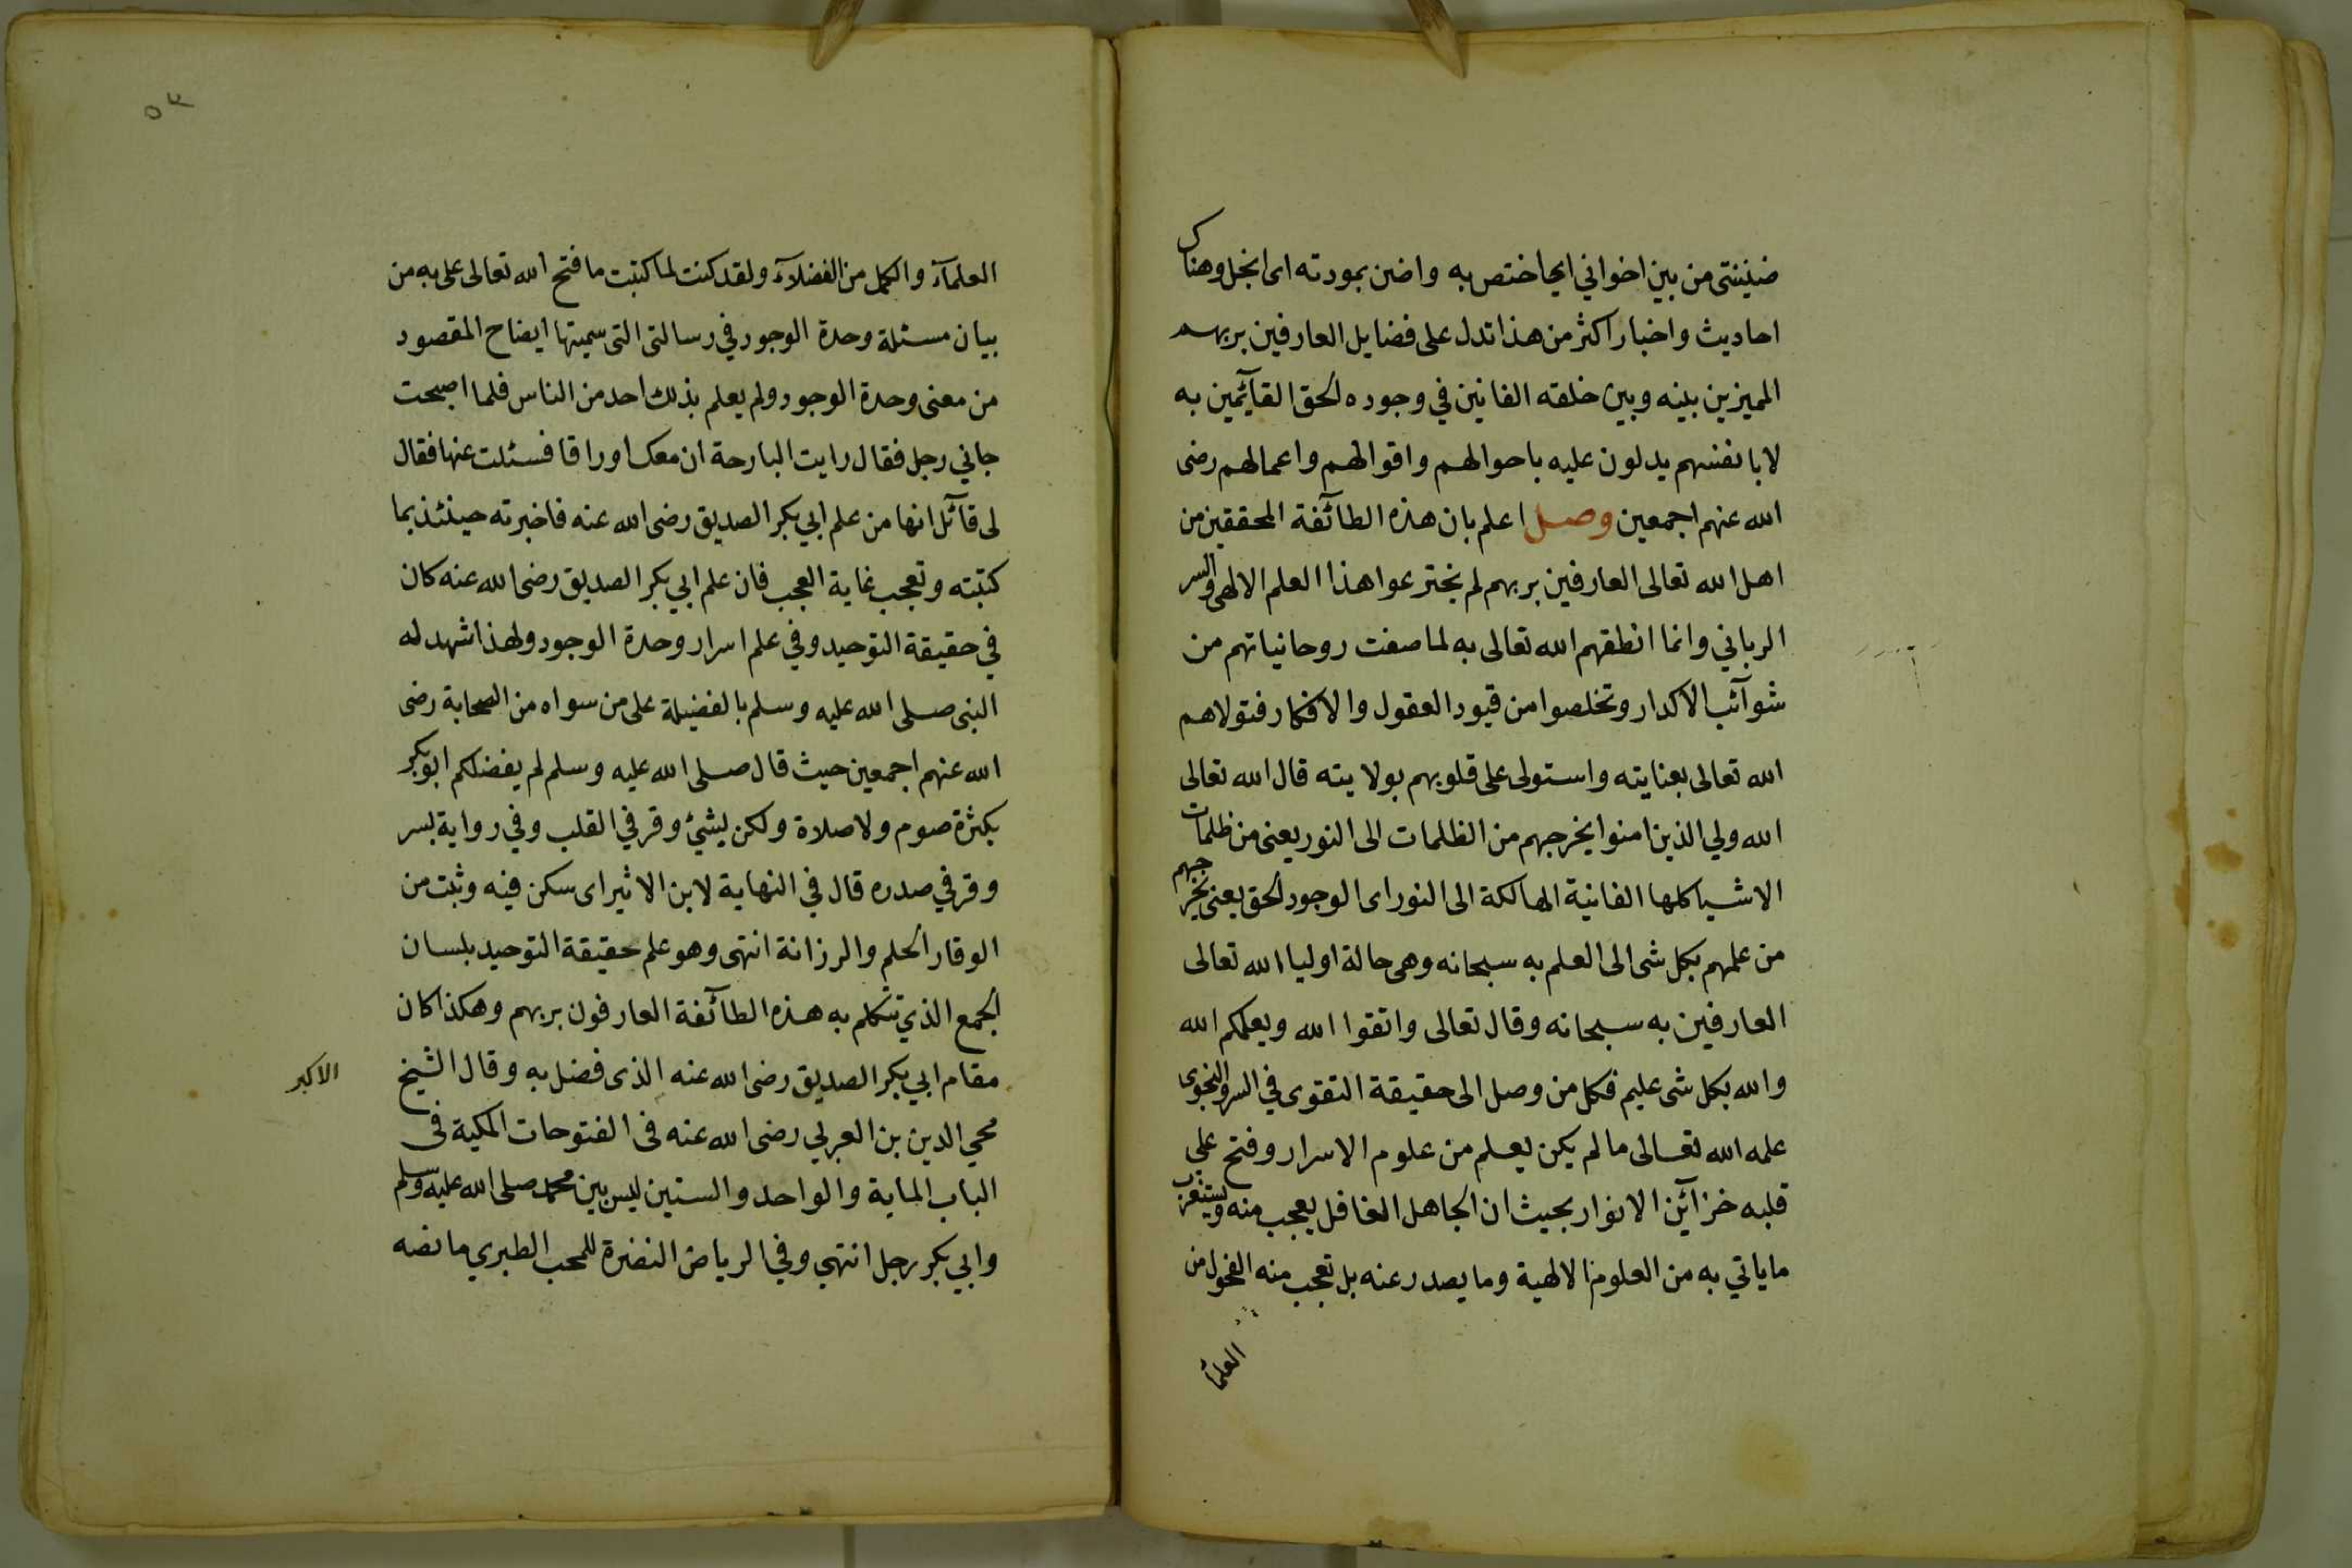 ضنينتى من بين اخواني اي اختص به واضن بمودته اى ابخل وهناك
احاديث واخبار اكثر من هذا تدل على فضايل العارفين بربهم
المميزين بينه وبين خلقه الفانين في وجوده الحق القآئمين به
لا بانفسهم يدلون عليه باحوالهم واقوالهم واعمالهم رضى
الله عنهم اجمعين وصل اعلم بان هذه الطآئفة المحققين من
اهل الله تعالى العارفين بربهم لم يخترعوا هذا العلم الالهى والسر
الرباني وانما انطقهم الله تعالى به لما صفت روحانياتهم من
شوآئب الاكدار وتخلصوا من قيود العقول والافكار فتولاهم
الله تعالى بعنايته واستولى على قلوبهم بولايته قال الله تعالى
الله ولي الذين امنوا يخرجهم من الظلمات الى النور يعنى من ظلمات
الاشيا كلها الفانية الهالكة الى النور اى الوجود الحق يعنى يخرجهم
من علمهم بكل شى الى العلم به سبحانه وهى حالة اوليا الله تعالى
العارفين به سبحانه وقال تعالى واتقوا الله ويعلمكم الله
والله بكل شى عليم فكل من وصل الى حقيقة التقوى في السر والنجوى
علمه الله تعالى ما لم يكن يعلم من علوم الاسرار وفتح على
قلبه خزآئن الانوار بحيث ان الجاهل الغافل يعجب منه ويستغرب
ما ياتي به من العلوم الالهية وما يصدر عنه بل تعجب منه الفحول من
العلمآ
٥٣
العلمآء والكمل من الفضلآء ولقد كنت لما كتبت ما فتح الله تعالى على به من
بيان مسئلة وحدة الوجود في رسالتى التى سميتها ايضاح المقصود
من معنى وحدة الوجود ولم يعلم بذلك احد من الناس فلما اصبحت
جاني رجل فقال رايت البارحة ان معك اوراقا فسئلت عنها فقال
لى قآئل انها من علم ابي بكر الصديق رضى الله عنه فاخبرته حينئذ بما
كتبته وتعجب غاية العجب فان علم ابي بكر الصديق رضى الله عنه كان
في حقيقة التوحيد وفي علم اسرار وحدة الوجود ولهذا شهد له
النبى صلى الله عليه وسلم بالفضيلة على من سواه من الصحابة رضى
الله عنهم اجمعين حيث قال صلى الله عليه وسلم لم يفضلكم ابو بكر
بكثرة صوم ولا صلاة ولكن لشئ وقر في القلب وفي رواية لسر
وقر في صدره قال في النهاية لابن الاثير اى سكن فيه وثبت من
الوقار الحلم والرزانة انتهى وهو علم حقيقة التوحيد بلسان
الجمع الذي تتكلم به هذه الطآئفة العارفون بربهم وهكذا كان
مقام ابي بكر الصديق رضى الله عنه الذى فضل به وقال الشيخ
الاكبر
محي الدين بن العربي رضى الله عنه فى الفتوحات المكية فى
الباب الماية والواحد والستين ليس بين محمد صلى الله عليه وسلم
وابي بكر رجل انتهي وفي الرياض النضرة للمحب الطبري ما نصه